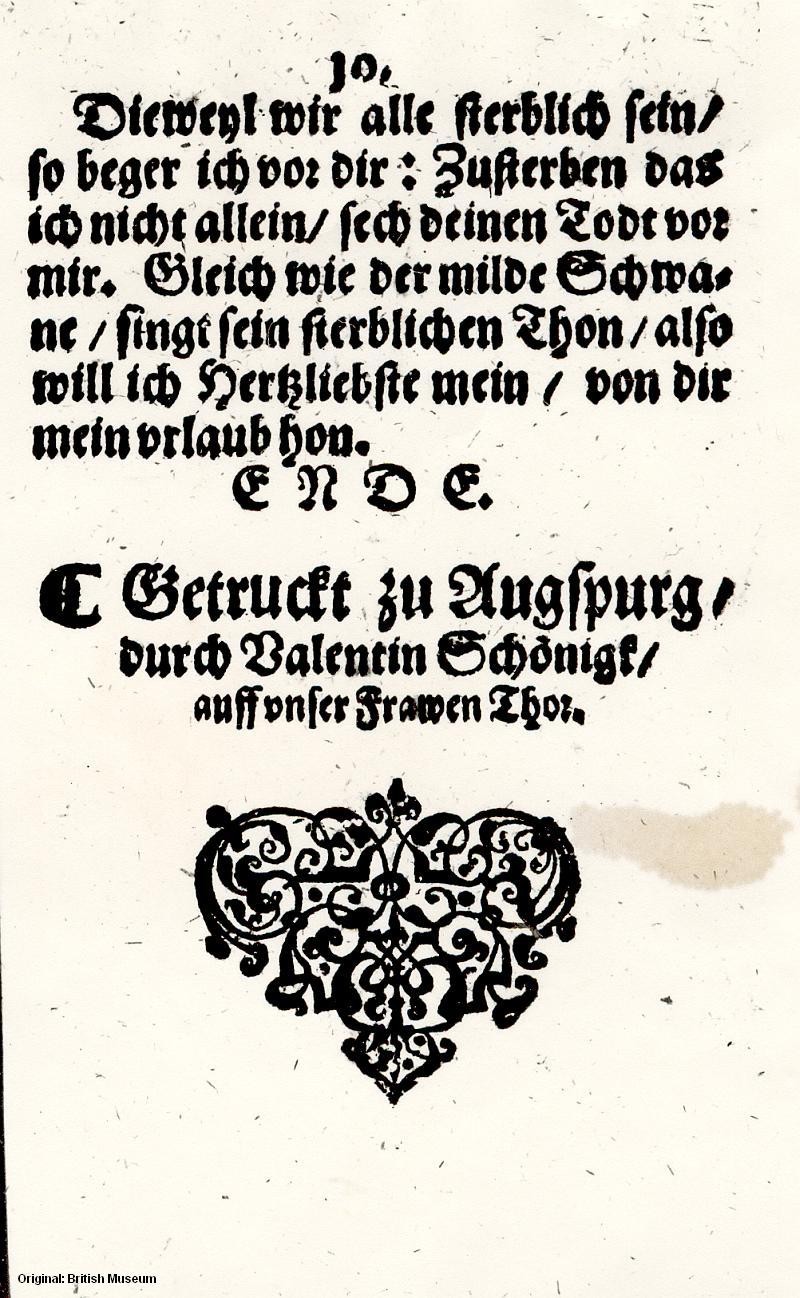 10.
Dieweyl wir alle sterblich sein/
so beger ich vor dir : Zusterben das
ich nicht allein/ sech deinen Todt vor
mir. Gleich wie der milde Schwa-
ne / singt sein sterblichen Thon / also
will ich Hertzliebste mein / von dir
mein vrlaub hon.
E N D E.
☾ Getruckt zu Augspurg/
durch Valentin Schönigk/
auff vnser Frawen Thor.
Original: British Museum